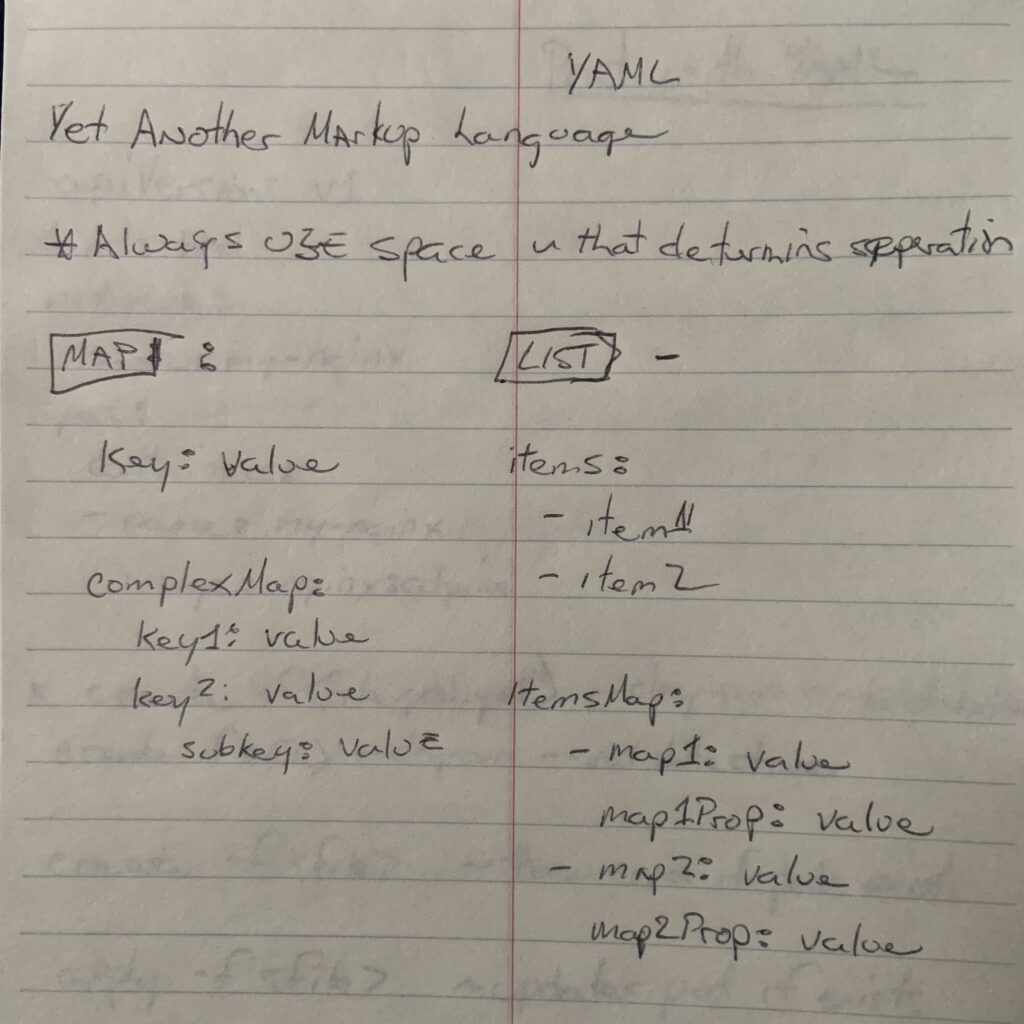 YAML
Yet Another Markup Language
* Always USE space that determins sepperation
MAP :
key: value
complexMap:
key1: value
key2: value
subkey: value
LIST -
items:
- item1
- item2
itemsMap:
- map1: value
map1Prop: value
- map2: value
map2Prop: value